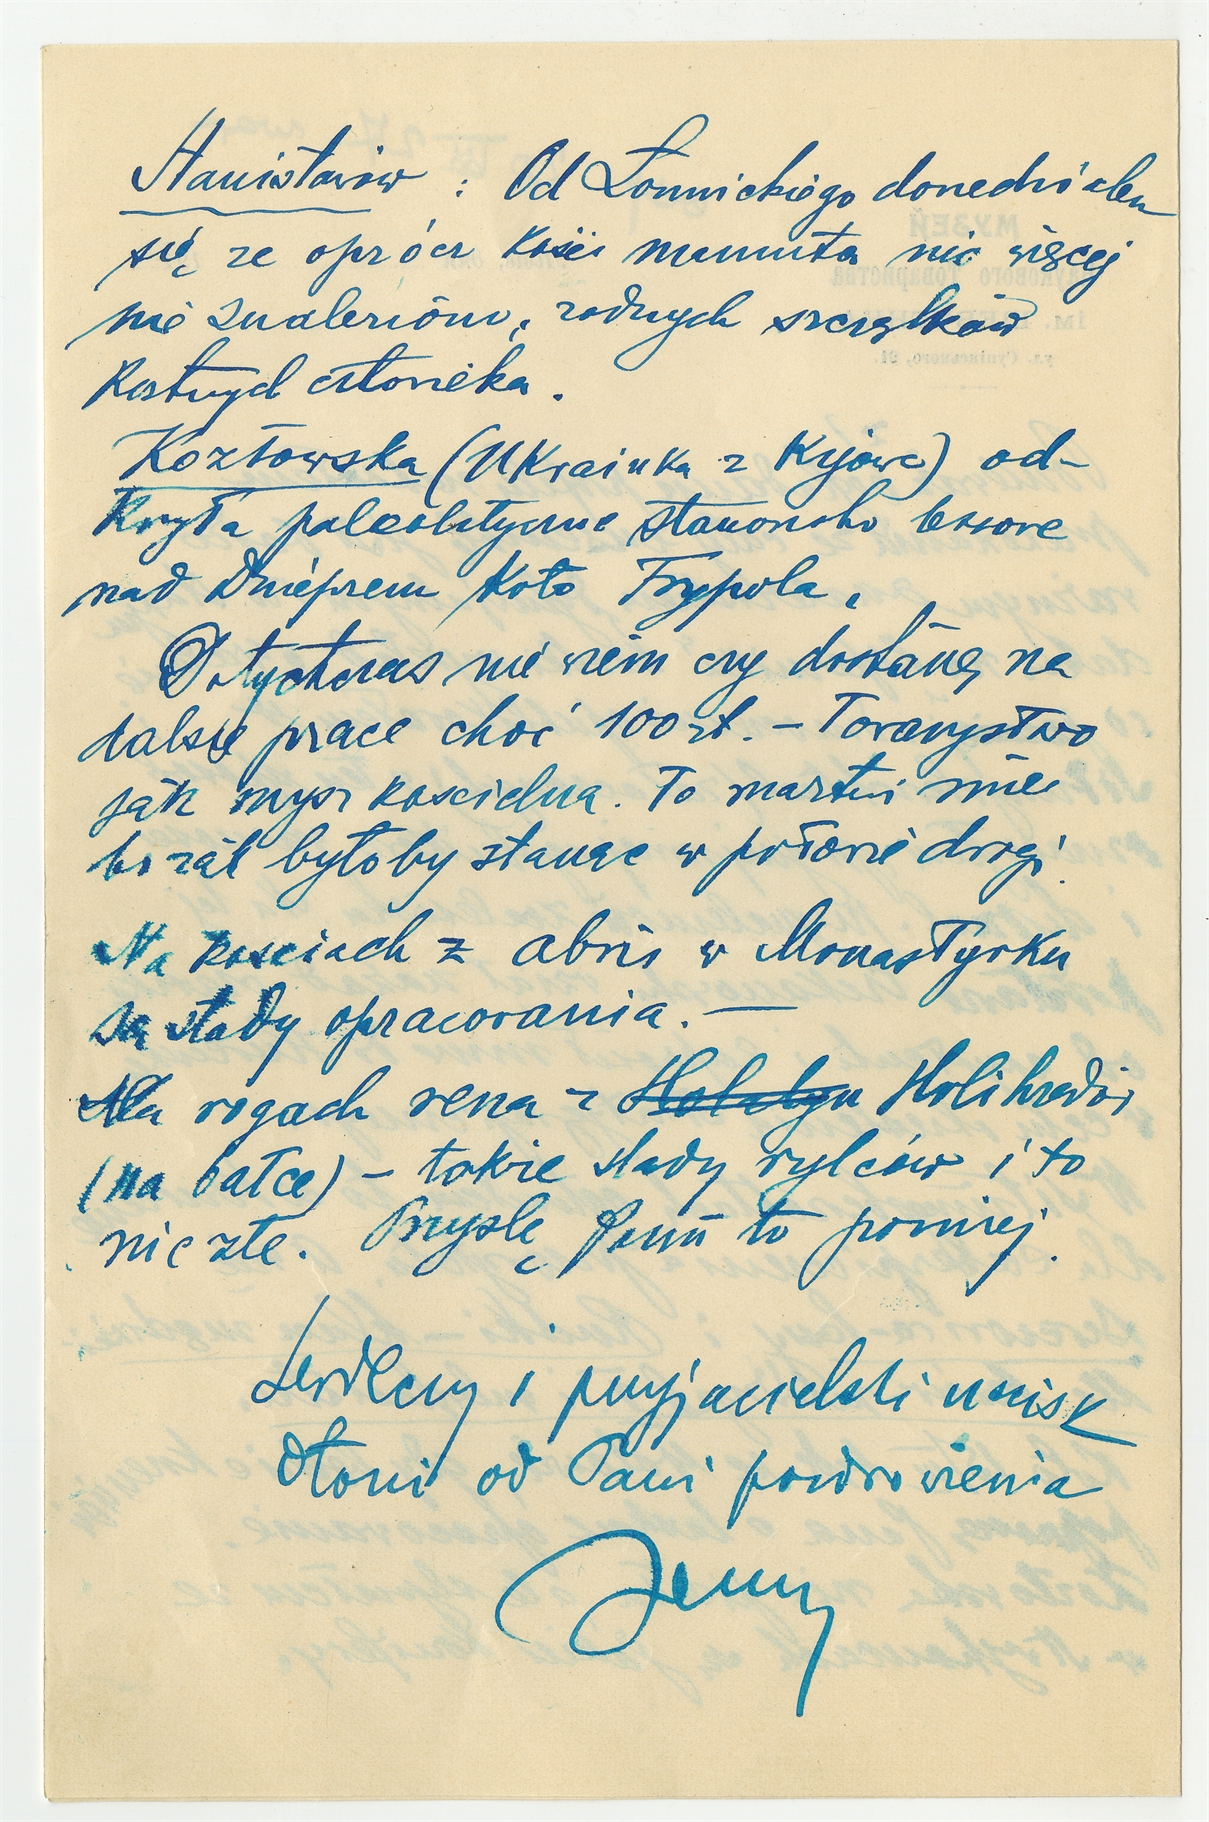 Stanisławów : Od Łomnickiego dowiedziałem
się, że oprócz kości mamuta nic więcej
nie znaleziono, żadnych szczątków
kostnych człowieka.
Kozłowska (Ukrainka z Kijowa) od-
kryła paleolityczne stanowisko lessowe
nad Dnieprem koło Trypola.
Dotychczas nie wiem czy dostanę na
dalsze prace choć 100 zł. – Towarzystwo
jak mysz kościelna. To martwi mnie
bo żal byłoby stanąć w połowie drogi.
Na kościach z abris w Monastyrku
są ślady opracowania. —
Na rogach rena z Holihradów
(na pałce) – także ślady rylców i to
nie złe. Przyślę Panu to poniżej.
Serdeczny i przyjacielski uścisk
dłoni od Pani pozdrowienia
МУЗЕЙ
Наукового Товариства
ім. ШЕВЧЕНКА
ул. Супінського, 21.